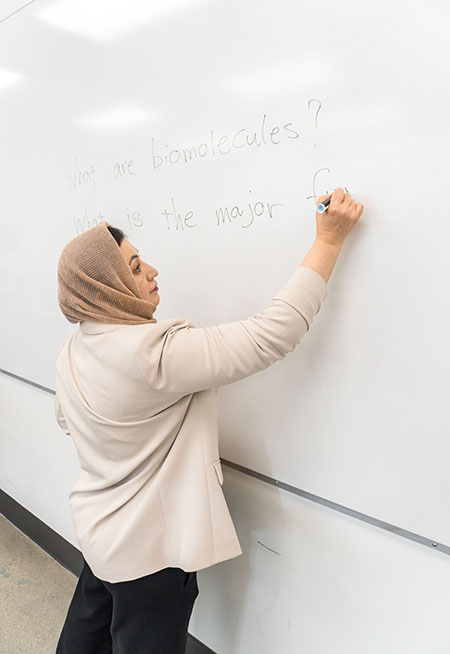 What are biomolecules?
What is the major